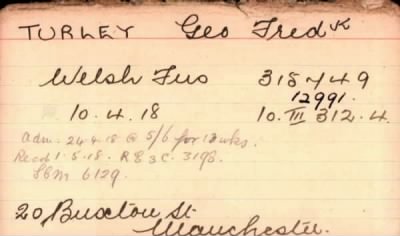 TURLEY Geo Fredk
Welsh Fus 318749
12991.
10.4.18 10.III 312.4.
Adm. 24.4.18 @ 5/6 for 12 wks.
Recd 1.5.18. R E 3 C. 3198.
6129.
20 Buxton St
Manchester.